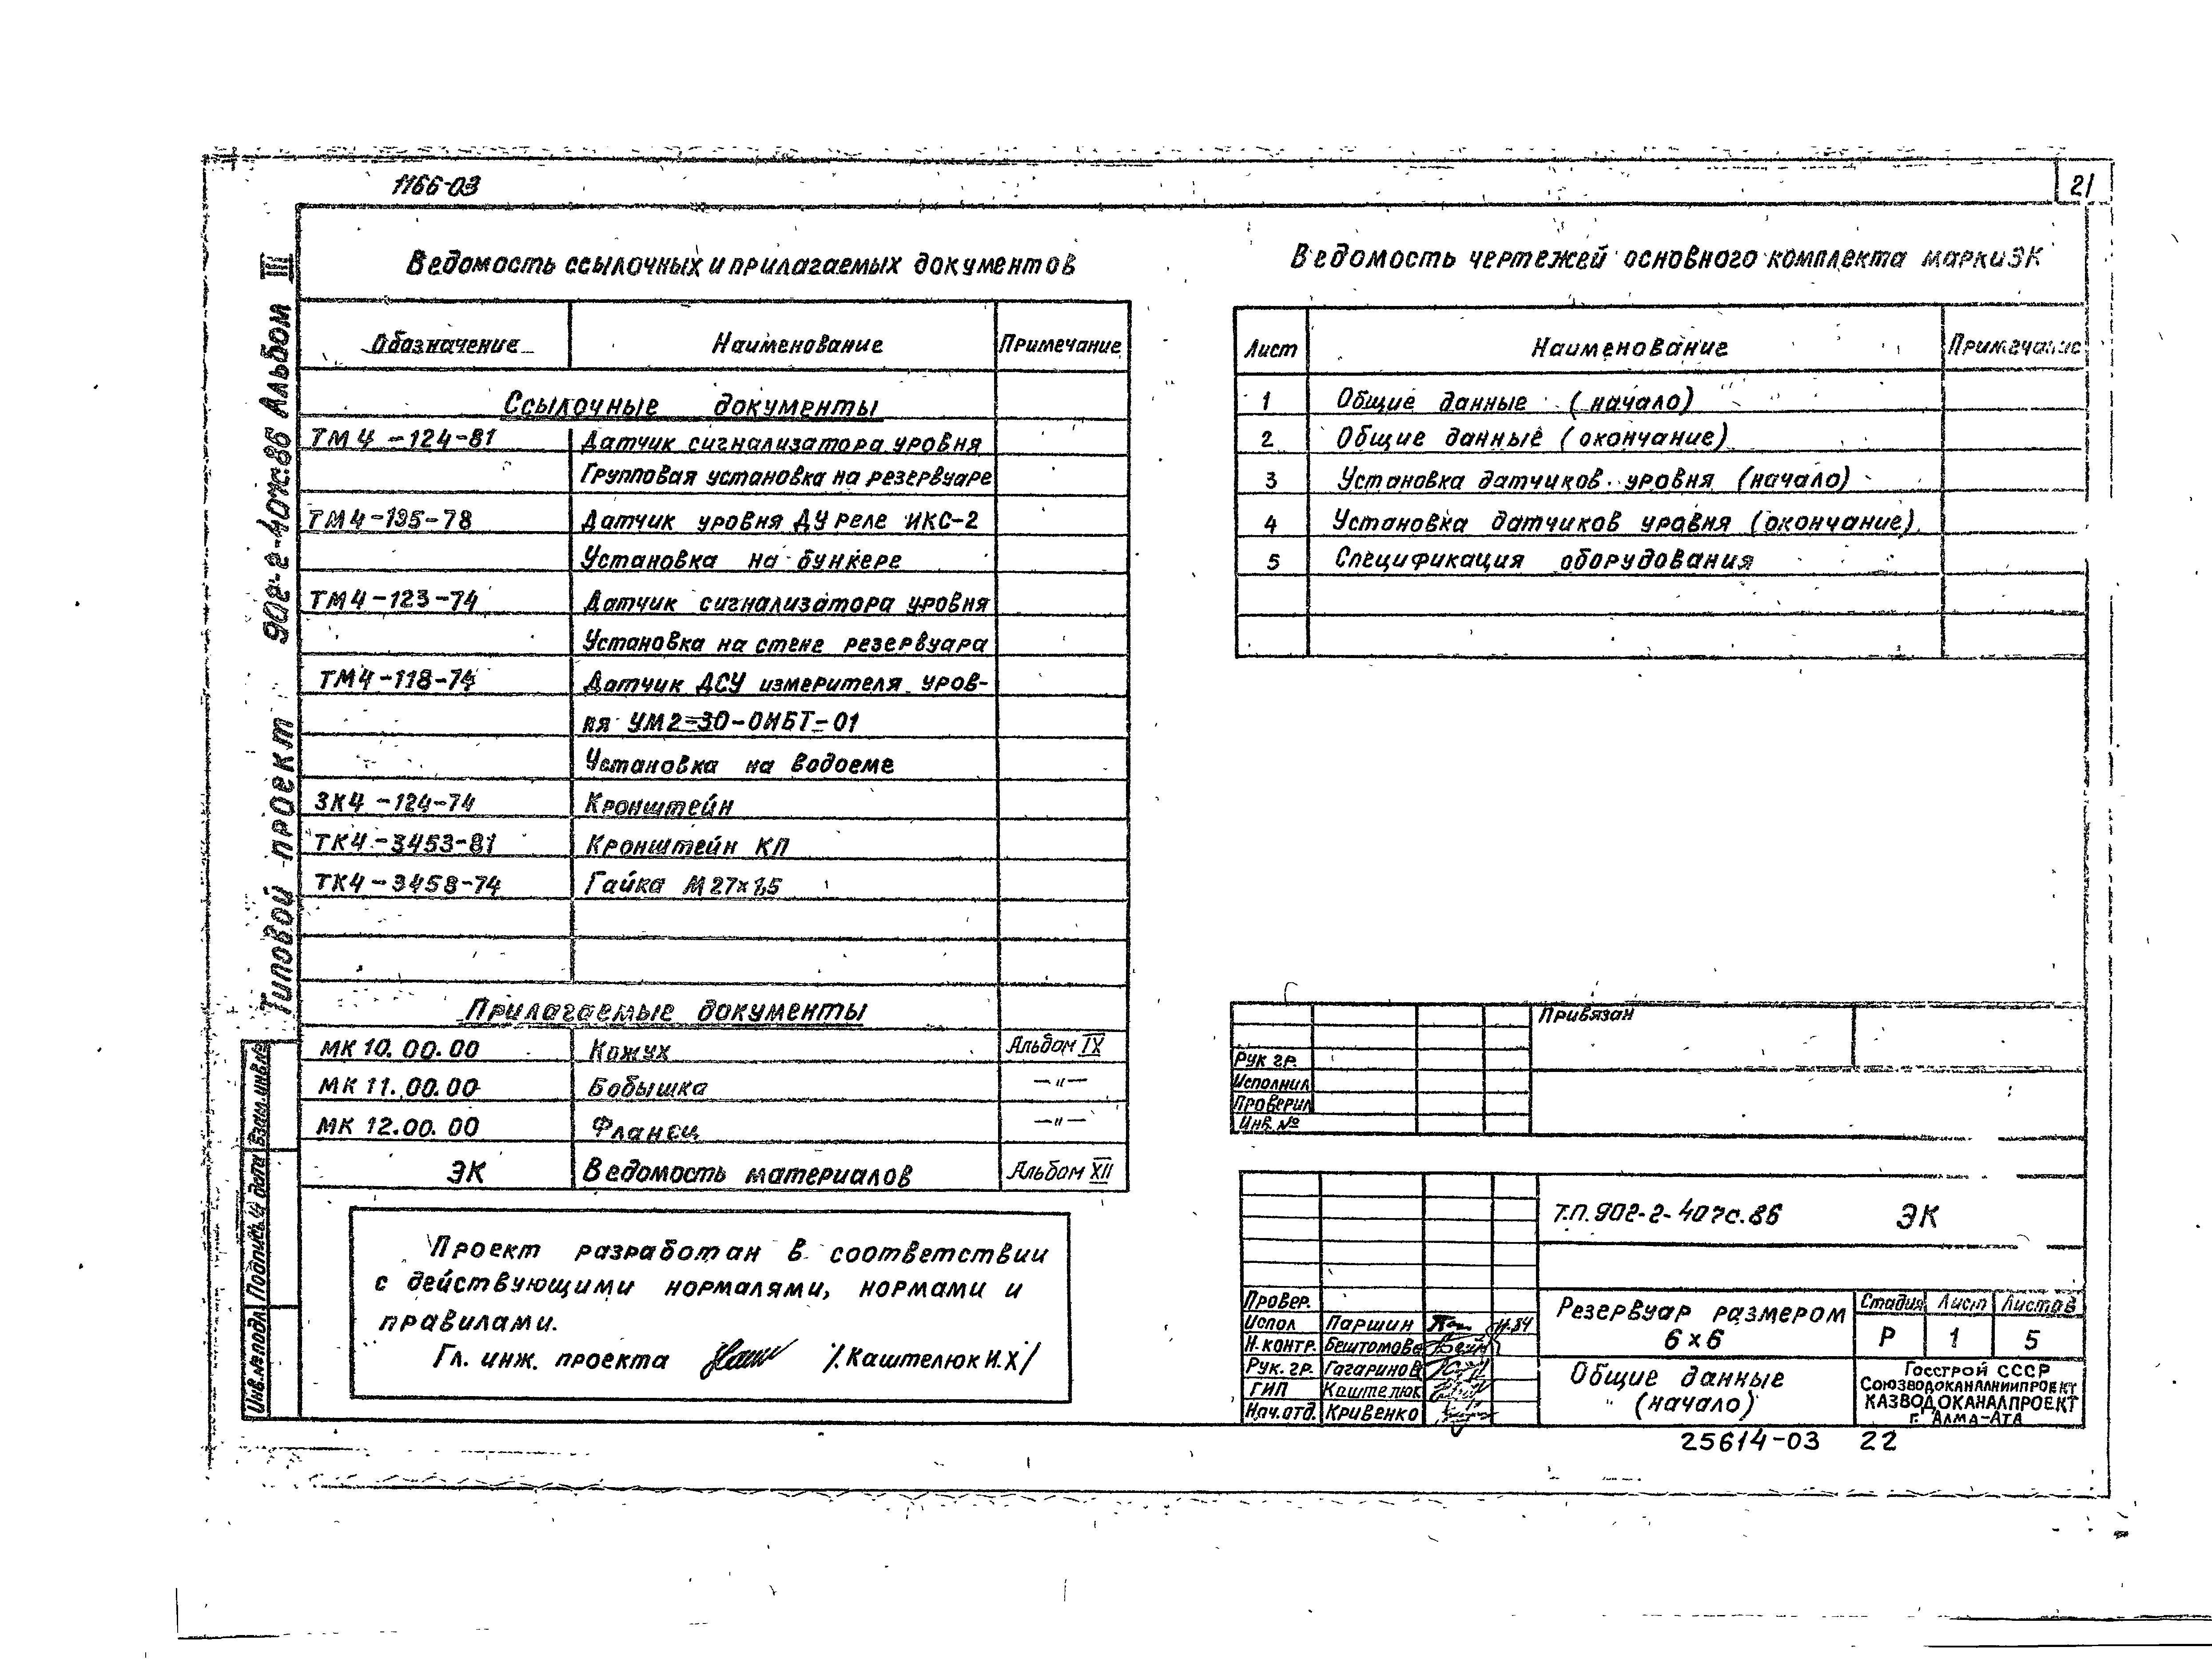 1166-03
21
Типовой проект 902-2-407с.86 Альбом III
Ведомость ссылочных и прилагаемых документов
Обозначение Наименование Примечание
Ссылочные документы
ТМ4-124-81 Датчик сигнализатора уровня
Групповая установка на резервуаре
ТМ4-195-78 Датчик уровня ДУ реле ИКС-2
Установка на бункере
ТМ4-123-74 Датчик сигнализатора уровня
Установка на стене резервуара
ТМ4-118-74 Датчик ДСУ измерителя уров-
ня УМ2-30-ОНБТ-01
Установка на водоеме
ЗК4-124-74 Кронштейн
ТК4-3453-81 Кронштейн КП
ТК4-3458-74 Гайка М27х1,5
Прилагаемые документы
МК 10.00.00 Кожух Альбом IX
МК 11.00.00 Бобышка —"—
МК 12.00.00 Фланец —"—
ЭК Ведомость материалов Альбом XII
Проект разработан в соответствии
с действующими нормалями, нормами и
правилами.
Гл. инж. проекта /Каштелюк И.Х/
Инв.№ подл. Подпись и дата Взам.инв.№
Ведомость чертежей основного комплекта марки ЭК
Лист Наименование Примечание
1 Общие данные (начало)
2 Общие данные (окончание)
3 Установка датчиков уровня (начало)
4 Установка датчиков уровня (окончание)
5 Спецификация оборудования
Привязан
Рук гр.
Исполнил
Проверил
Инв. №
Т.П. 902-2-407с.86 ЭК
Провер.
Испол Паршин
Н.контр. Бештомова
Рук.гр. Гагаринов
ГИП Каштелюк
Нач.отд. Кривенко
Резервуар размером
6х6
Стадия Лист Листов
Р 1 5
Общие данные
(начало)
Госстрой СССР
СОЮЗВОДОКАНАЛНИИПРОЕКТ
КАЗВОДОКАНАЛПРОЕКТ
г. Алма-Ата
25614-03 22